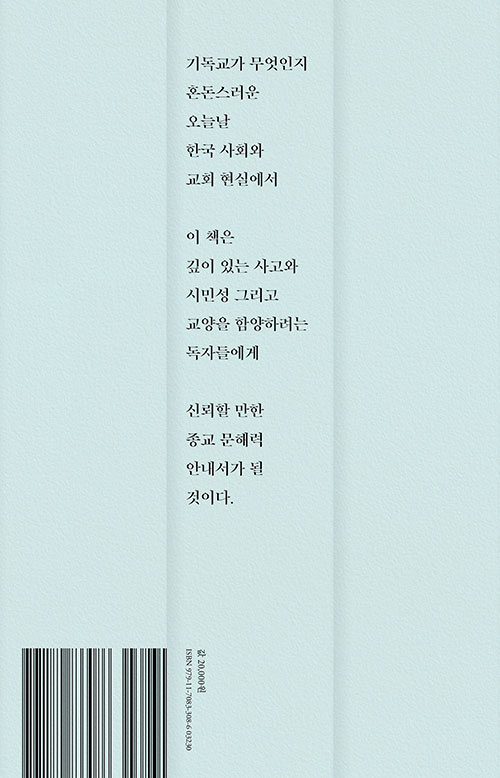 기독교가 무엇인지
혼돈스러운
오늘날
한국 사회와
교회 현실에서
이 책은
깊이 있는 사고와
시민성 그리고
교양을 함양하려는
독자들에게
신뢰할 만한
종교 문해력
안내서가 될
것이다.
값 20,000원
ISBN 979-11-7083-308-6 03230